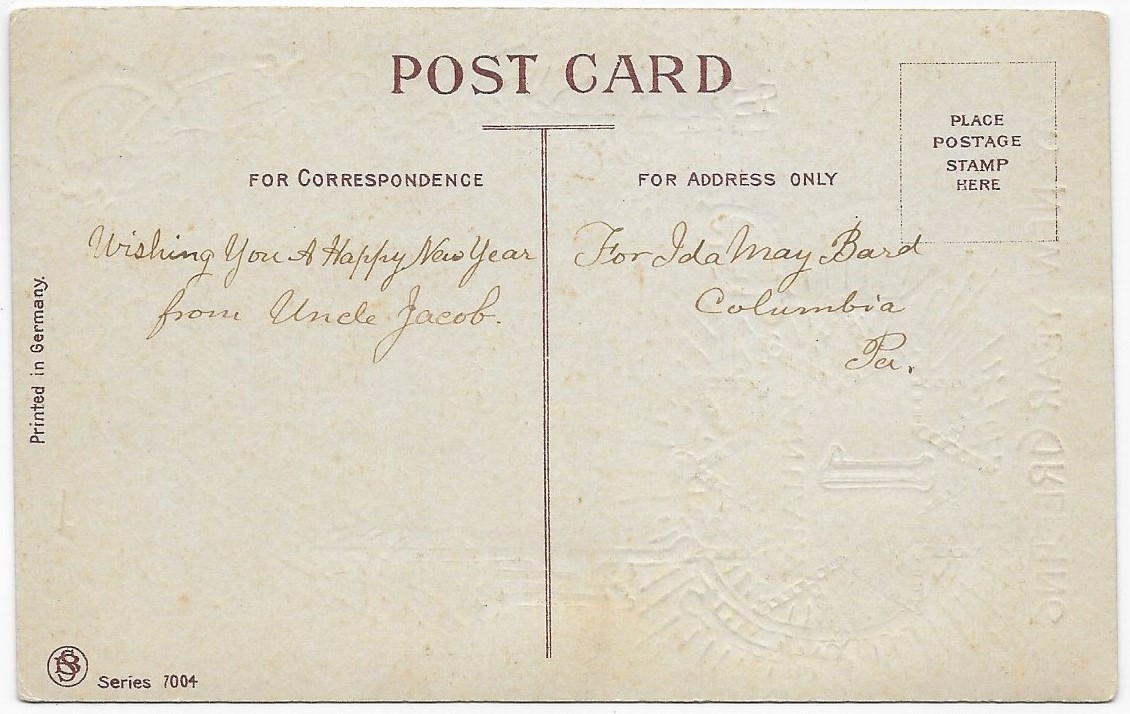 POST CARD
PLACE
POSTAGE
STAMP
HERE
FOR CORRESPONDENCE
FOR ADDRESS ONLY
Wishing You A Happy New Year
from Uncle Jacob.
For Ida May Bard
Columbia
Pa.
Printed in Germany.
Series 7004
NEW YEAR GREETING
JANUARY
1